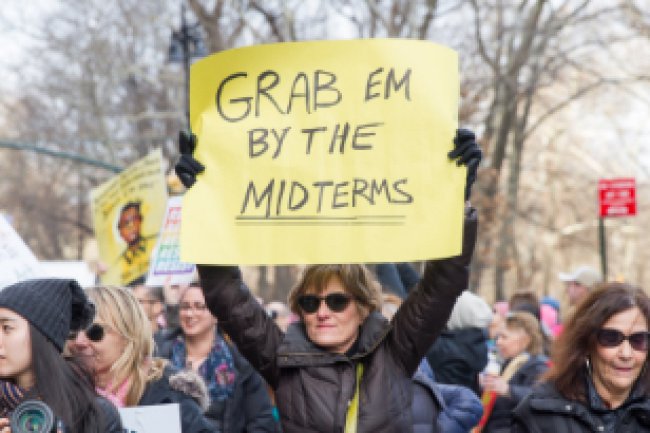 GRAB EM
BY THE
MIDTERMS